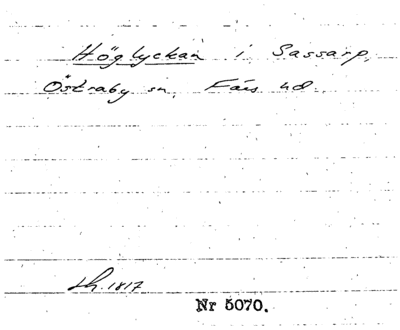 Höglyckan i Sassarp,
Östraby sn, Färs hd.
Lh. 1817
Nr 5070.